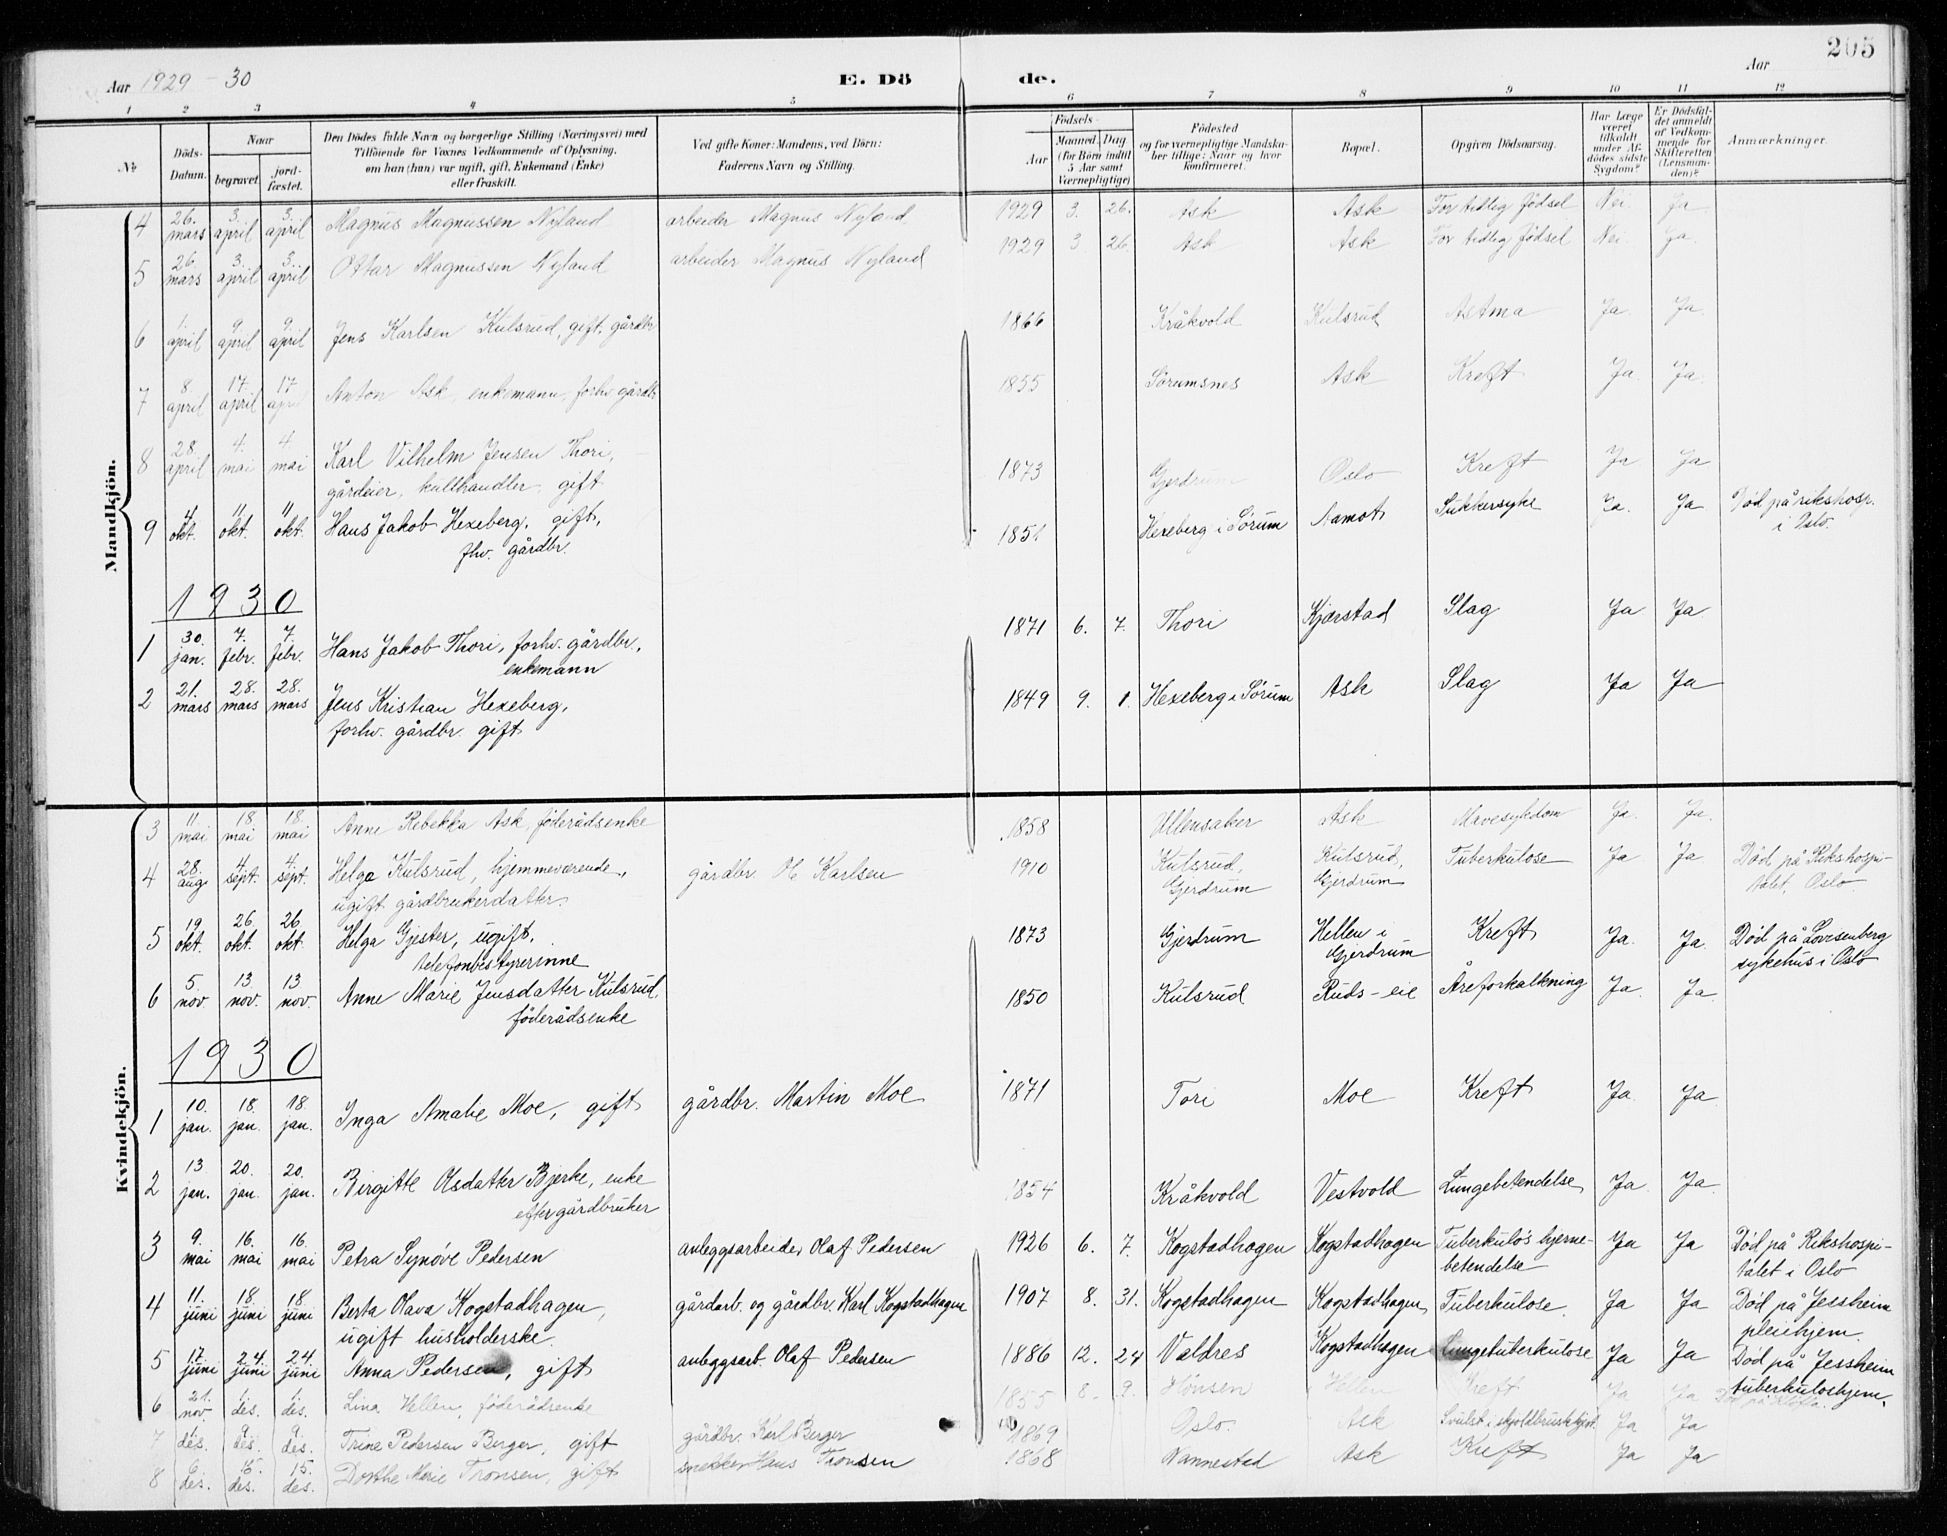 205
Aar 1929-30 E. Dö de. Aar
1 2 3 4 5 6 7 8 9 10 11 12
№ Döds-Datum. Naar begravet. jord-fæstet. Den Dödes fulde Navn og borgerlige Stilling (Næringsvei) med Tilföiende for Voxnes Vedkommende af Oplysning. om han (hun) var ugift, gift, Enkemand (Enke) eller fraskilt. Ved gifte Koner: Mandens, ved Börn: Faderens Navn og Stilling. Födsels- Aar Maaned. Dag (for Börn indtil 5 Aar samt Værnepligtige) Födested og for værnepligtige Mandskaber tillige: Naar og hvor konfirmeret. Bopæl. Opgiven Dödsaarsag. Har Læge været tilkaldt under Afdödes sidste Sygdom? Er Dödsfaldet anmeldt af Vedkommende for Skifteretten (Lensmanden)? Anmærkninger.
Mandkjön.
4 26. mars 3. april 3. april Magnus Magnussen Nyland arbeider Magnus Nyland 1929 3. 26. Ask Ask For tidlig födsel Nei Ja
5 26. mars 3. april 3. april Ottar Magnussen Nyland arbeider Magnus Nyland 1929 3 26. Ask Ask For tidlig födsel Nei Ja.
6 1 april 9 april 9. april Jens Karlsen Kulsrud, gift, gårdbr 1866 Kråkvold Kulsrud Astma Ja. Ja.
7 8 april 17. april 17 april Anton Ask, enkemann, forhv. gårdbr 1855 Sörumsnes Ask Kreft Ja. Ja.
8 28. april 4. mai 4 mai Karl Vilhelm Jensen Thori, 1873 Gjerdrum Oslo Kreft Ja Ja
gårdeier, kullhandler, gift
9 4 okt. 11 okt. 11 okt. Hans Jakob Hexeberg, gift, 1851 Hexeberg i Sörum Aamot Sukkersyke Ja. Ja Död på rikshosp.
fhv. gårdbr. i Oslo.
1930
1 30. jan. 7. febr. 7. febr. Hans Jakob Thori, forhv. gårdbr., 1871 6. 7. Thori Kjærstad Slag Ja Ja
enkemann
2 21. mars 28. mars 28. mars Jens Kristian Hexeberg, 1849 9. 1. Hexeberg i Sörum Ask Slag Ja Ja
forhv. gårdbr. gift
Kvindekjön.
3 11 mai 18 mai 18. mai Anne Rebekka Ask, föderådsenke 1858 Ullensaker Ask Mavesykdom Ja. Ja.
4 28. aug 4 sept. 4 sept. Helga Kulsrud, hjemmeværende, gårdbr. Ol Karlsen 1910 Kulsrud, Kulsrud, Tuberkulose Ja Ja Död på Rikshospi-
ugift gårdbrukerdatter. Gjerdrum Gjerdrum talet, Oslo.
5 19 okt. 26 okt. 26. okt. Helga Gjester, ugift, 1873 Gjerdrum Hellen i Kreft Ja. Ja. Död på Lovisenberg
telefonbestyrerinne Gjerdrum sykehus i Oslo
6 5. nov 13 nov. 13 nov. Anne Marie Jensdatter Kulsrud, 1850 Kulsrud Ruds-eie Åreforkalkning Ja. Ja.
föderådsenke
1930
1 10. jan. 18. jan. 18. jan. Inga Amalie Moe, gift gårdbr. Martin Moe 1871 Tori Moe Kreft Ja Ja.
2 13 jan. 20. jan. 20. jan. Birgitte Olsdatter Bjerke, enke 1854 Kråkvold Vestvold Lungebetendelse Ja Ja.
efter gårdbruker
3 9. mai 16. mai 16. mai Petra Synöve Pedersen anleggsarbeider Olaf Pedersen 1926 6. 7. Kogstadhagen Kogstadhagen Tuberkulös hjerne- Ja Ja Död på Rikshospi-
betendelse talet i Oslo
4 11. juni 18. juni 18 juni Berta Olava Kogstadhagen, gårdarb. og gårdbr. Karl Kogstadhagen 1907 8. 31. Kogstadhagen Kogstadhagen Tuberkulose. Ja Ja Död på Jessheim
ugift husholderske. pleiehjem.
5 17. juni 24 juni 24 juni Anna Pedersen, gift anleggsarb. Olaf Pedersen 1886 12. 24 Valdres Kogstadhagen Lungetuberkulose Ja Ja Död på Jessheim
tuberkulosehjem.
6 21. nov. 1. des. 1. des. Lina Hellen, föderådsenke 1855 8. 9. Hönsen Hellen Kreft Ja Ja Död på Klöfta.
7 1 des. 9 des. 9 des. Trine Pedersen Berger, gift gårdbr. Karl Berger 1869 Oslo. Ask Svulst i skjoldbruskkjert. Ja Ja
8 6 des. 15. des. 15. des. Dorthe Marie Tronsen, gift snekker Hans Tronsen 1868 Nannestad Ask Kreft Ja Ja